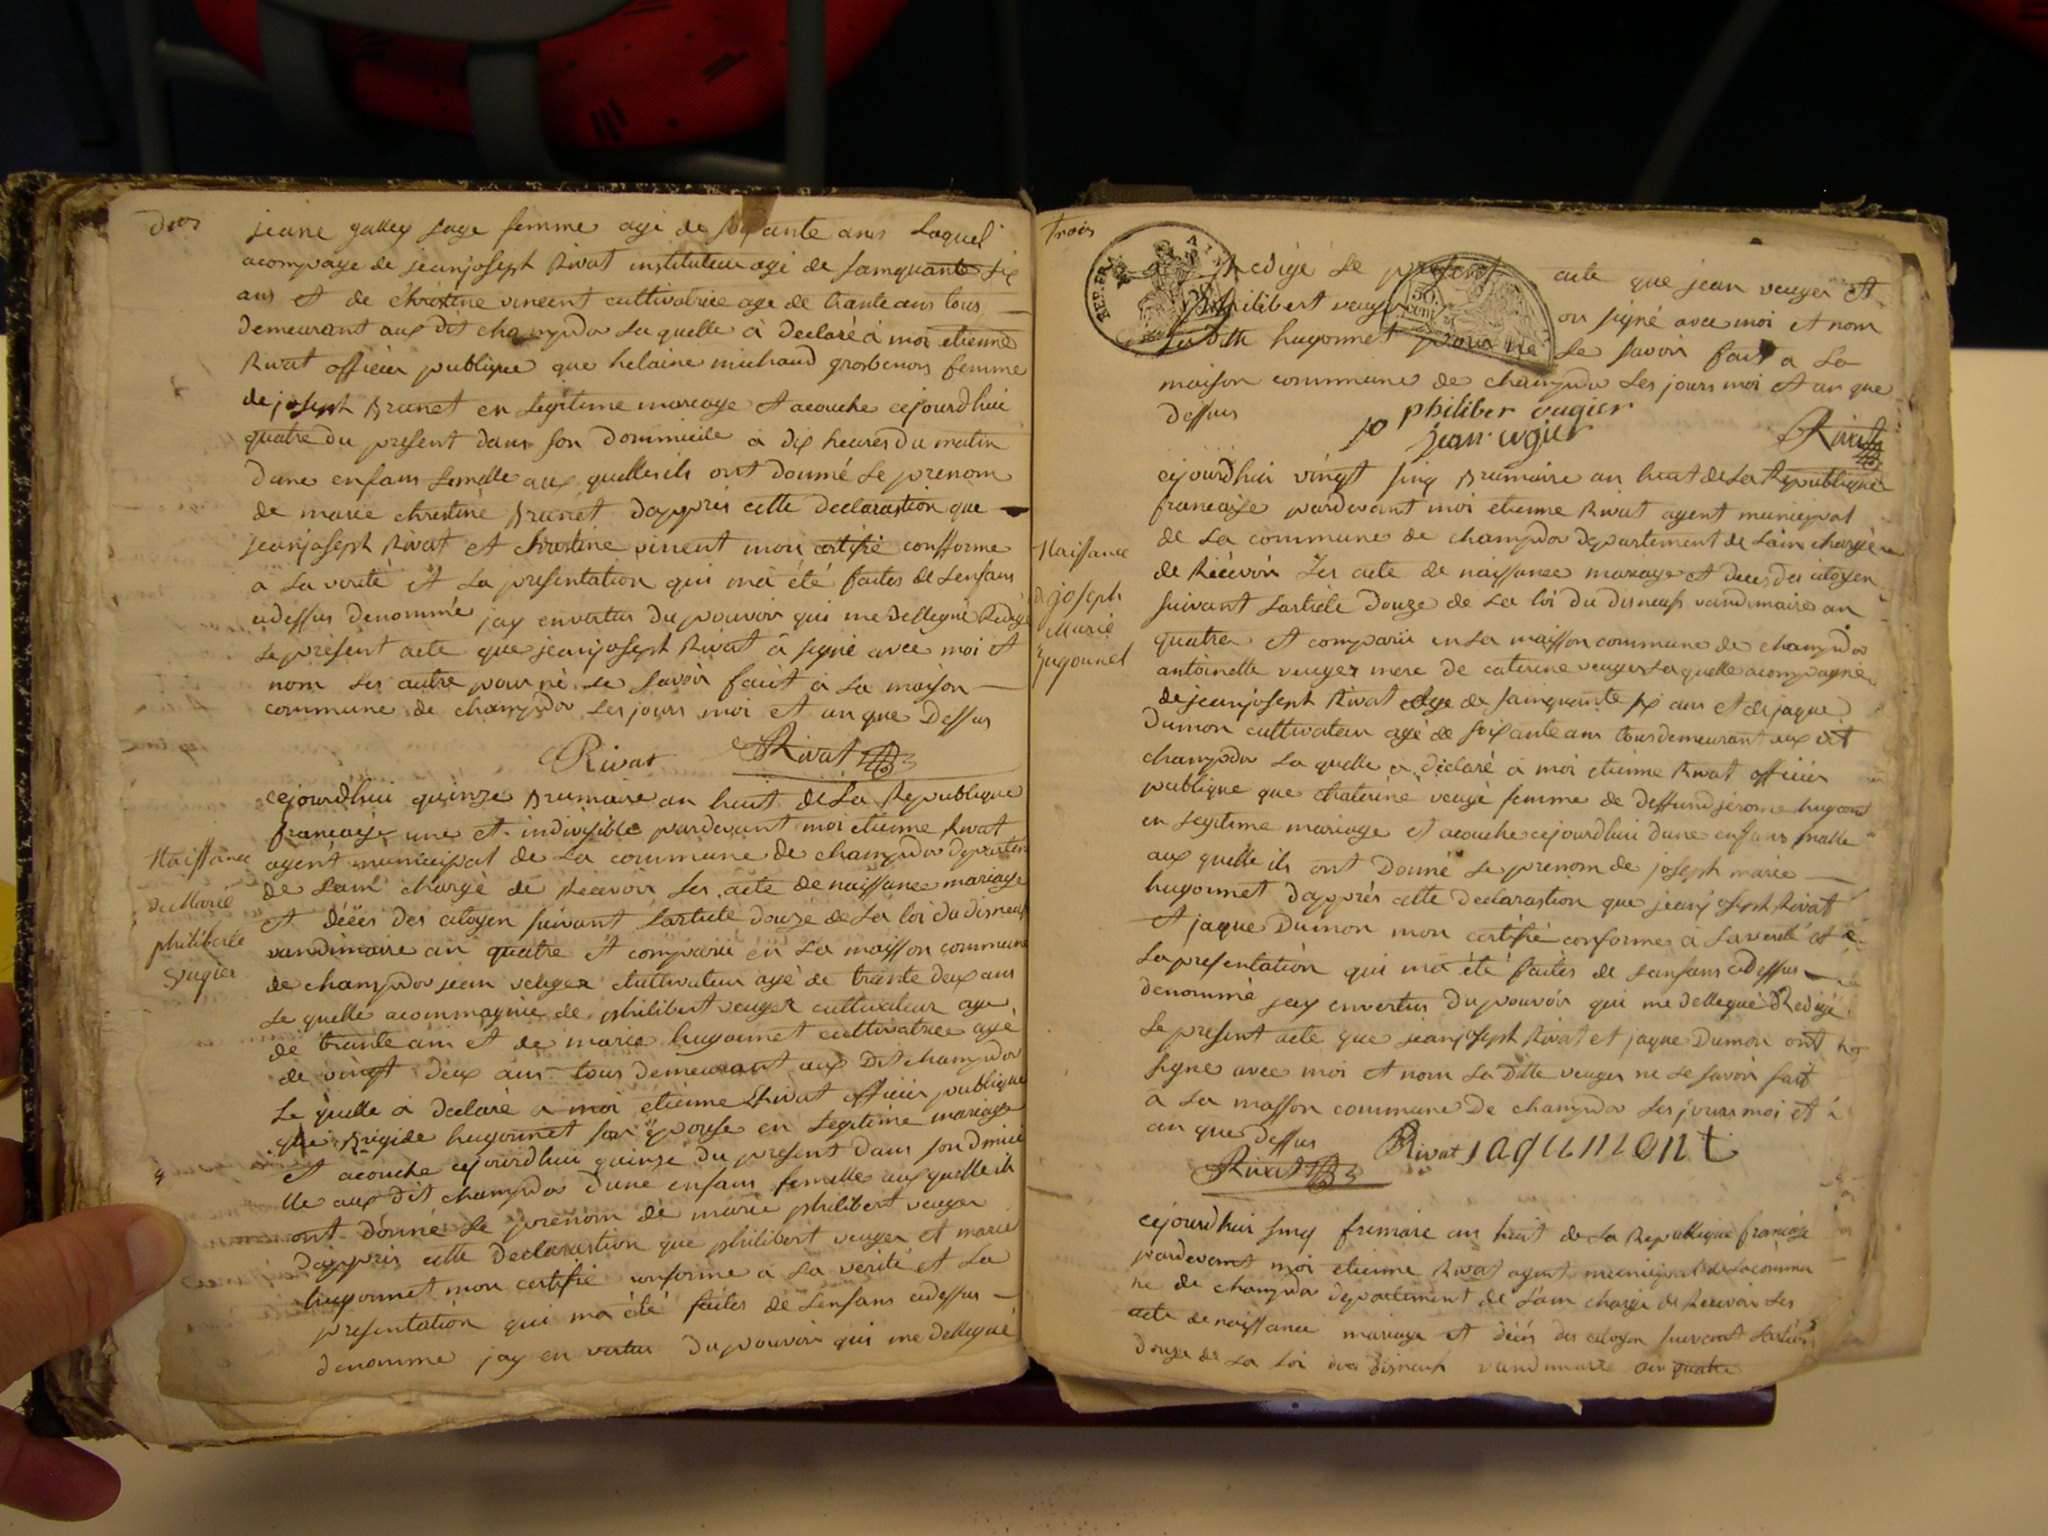 deux
jeane galley sage femme agé de soixante ans Laquel
acompage de jeanjoseph Rivat instituteur agé de sainquante six
ans et de christine vincent cultivatrice age de trante ans tous
demeurant aux dit champdor la quelle à declaré à moi etienne
Rivat officier publique que helaine michaud grosbenois femme
de joseph Brunet en legitime mariage et acouche cejourdhui
quatre du present dans son dommicile a dix heures du matin
dune enfans femelle aux quelle ils ont donné le prenom
de marie christine Brunet dappres cette declarastion que
jeanjoseph Rivat et christine vincent mon certifié confforme
a la verité et la presentation qui ma été faites de lenfans
cidessus denommé jay envertus du pouvoir qui me dellegué Redigé
le présent acte que jeanjoseph Rivat à signé avec moi et
nom les autre pour né le savoir fait à la maison
commune de champdor les jours moi et an que dessus
Rivat Rivat
Naissance
de Marie
philiberte
vugier
cejourdhui quinze Brumaire an huit de La Republique
francaise une et indivisible pardevant moi etienne Rivat
agent municipal de la commune de champdor departem
de Lain chargé de Recevoir les acte de naissance mariage
et déées des citoyen suivant l'article douze de la loi du disneuf
vandimaire an quatre et comparu en la maisson commune
de champdor jean veuger cultivateur agé de trante deux ans
le quelle acommagnié de philibert veuger cultivateur age
de trante ans et de marie hugonnet cultivatrice agé
de vingt deux ans tous demeurant aux dit champdor
le quelle a declaré a moi etienne Rivat officier publique
que Brigide hugonnet son epouse en legitime mariage
et acouche cejourdhui quinze du present dans son dmici
lle aux dit champdor dune enfans femelle aux quelle ils
ont donné le prenom de marie philibert veuger
dappris cette declarastion que philibert veuger et marie
hugonnet mon certifié conforme a la verité et la
presentation qui ma été faites de lenfans cidessus
denommé jay en vertus du pouvoir qui me dellegué
trois
REP. FRA.
50 cent
Redigé le present acte que jean veuger et
philibert veuger on signé avec moi et nom
la ditte hugonnet pour né le savoir fait a la
maison commune de champdor les jours moi et an que
dessus
philiber vugier
jean vugier
Rivat
Naissance
de joseph
Marie
hugonnet
cejourdhui vingt sinq Brumaire an huit de La Republique
francaise pardevant moi etienne Rivat agent municipal
de La commune de champdor departement de Lain chargé
de Récevoir les acte de naissance mariage et deces des citoyen
suivant l'article douze de la loi du disneufs vandimaire an
quatre et comparu en la maisson commune de champdor
antoinette veuger mere de caterine veuger laquelle acompagné
de jeanjoseph Rivat age de sainquante six ans et de jaque
Dumon cultivateur agé de soixante ans tous demeurant aux dit
champdor la quelle a déclaré à moi etienne Rivat officier
publique que chaterine veugé femme de deffund jérome hugont
en legitime mariage et acouche cejourdhui dune enfans malle
aux quelle ils ont donné le prenom de joseph marie
hugonnet dapprés cette declarastion que jeanjoseph Rivat
et jaque Dumon mon certifié conforme à la verité et
la presentation qui ma été faites de lanfans cidessus
denommé jay envertus du pouvoir qui me dellegué Redigé
le present acte que jeanjoseph Rivat et jaque Dumon ont
signe avec moi et nom la ditte veuger ne le savoir fait
a la masson commune de champdor les jours moi et
an que dessus
Rivat jaqumont
Rivat
cejourdhui sinq frimaire an huit de La Republique francaise
pardevant moi etienne Rivat agent municipal de la commu
ne de champdor departement de Lain chargé de Recevoir les
acte de naissance mariage et décés des citoyen suivant larticle
douze de la loi du disneuf vandimaire an quatre